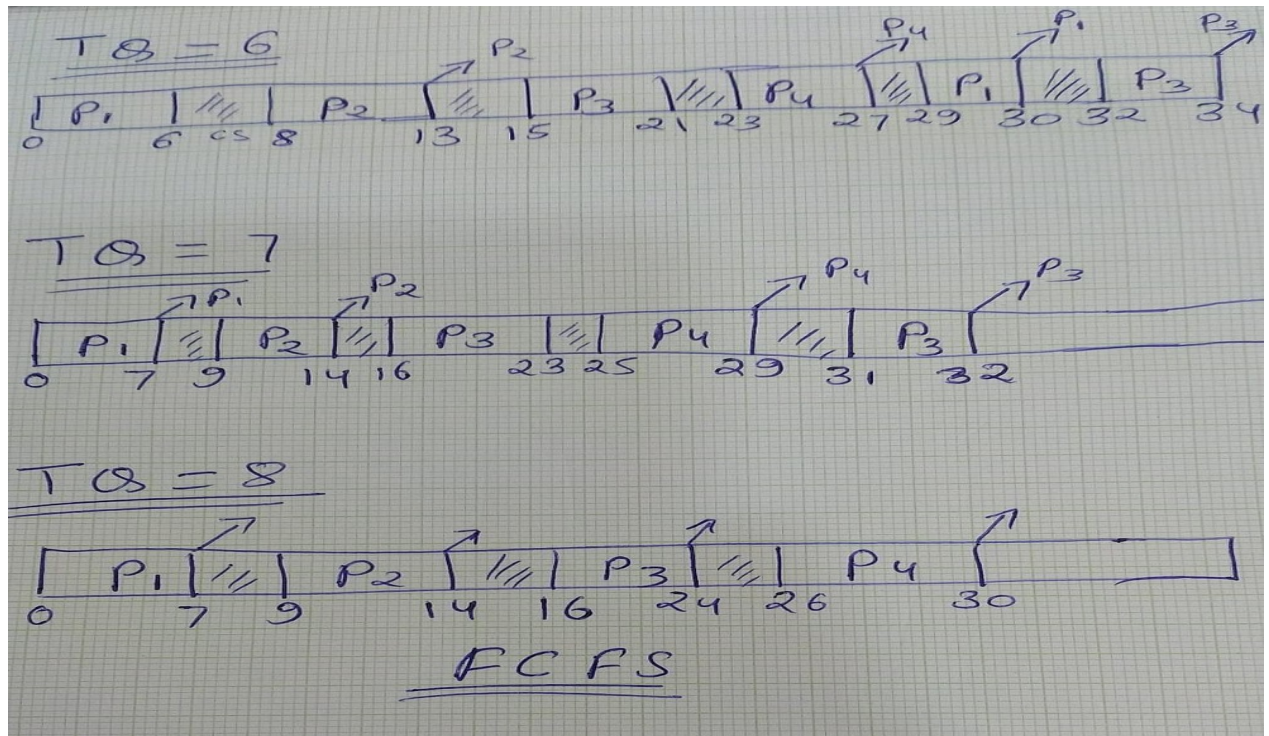 TQ = 6
P2 P4 P1 P3
P1 P2 P3 P4 P1 P3
0 6 CS 8 13 15 21 23 27 29 30 32 34
TQ = 7
P1 P2 P4 P3
P1 P2 P3 P4 P3
0 7 9 14 16 23 25 29 31 32
TQ = 8
P1 P2 P3 P4
0 7 9 14 16 24 26 30
FCFS